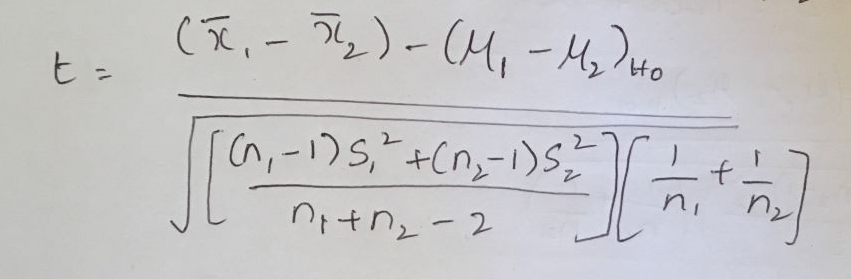 t = \frac{(\bar{x}_1 - \bar{x}_2) - (\mu_1 - \mu_2)_{H_0}}{\sqrt{\left[\frac{(n_1-1)S_1^2 + (n_2-1)S_2^2}{n_1+n_2-2}\right]\left[\frac{1}{n_1} + \frac{1}{n_2}\right]}}